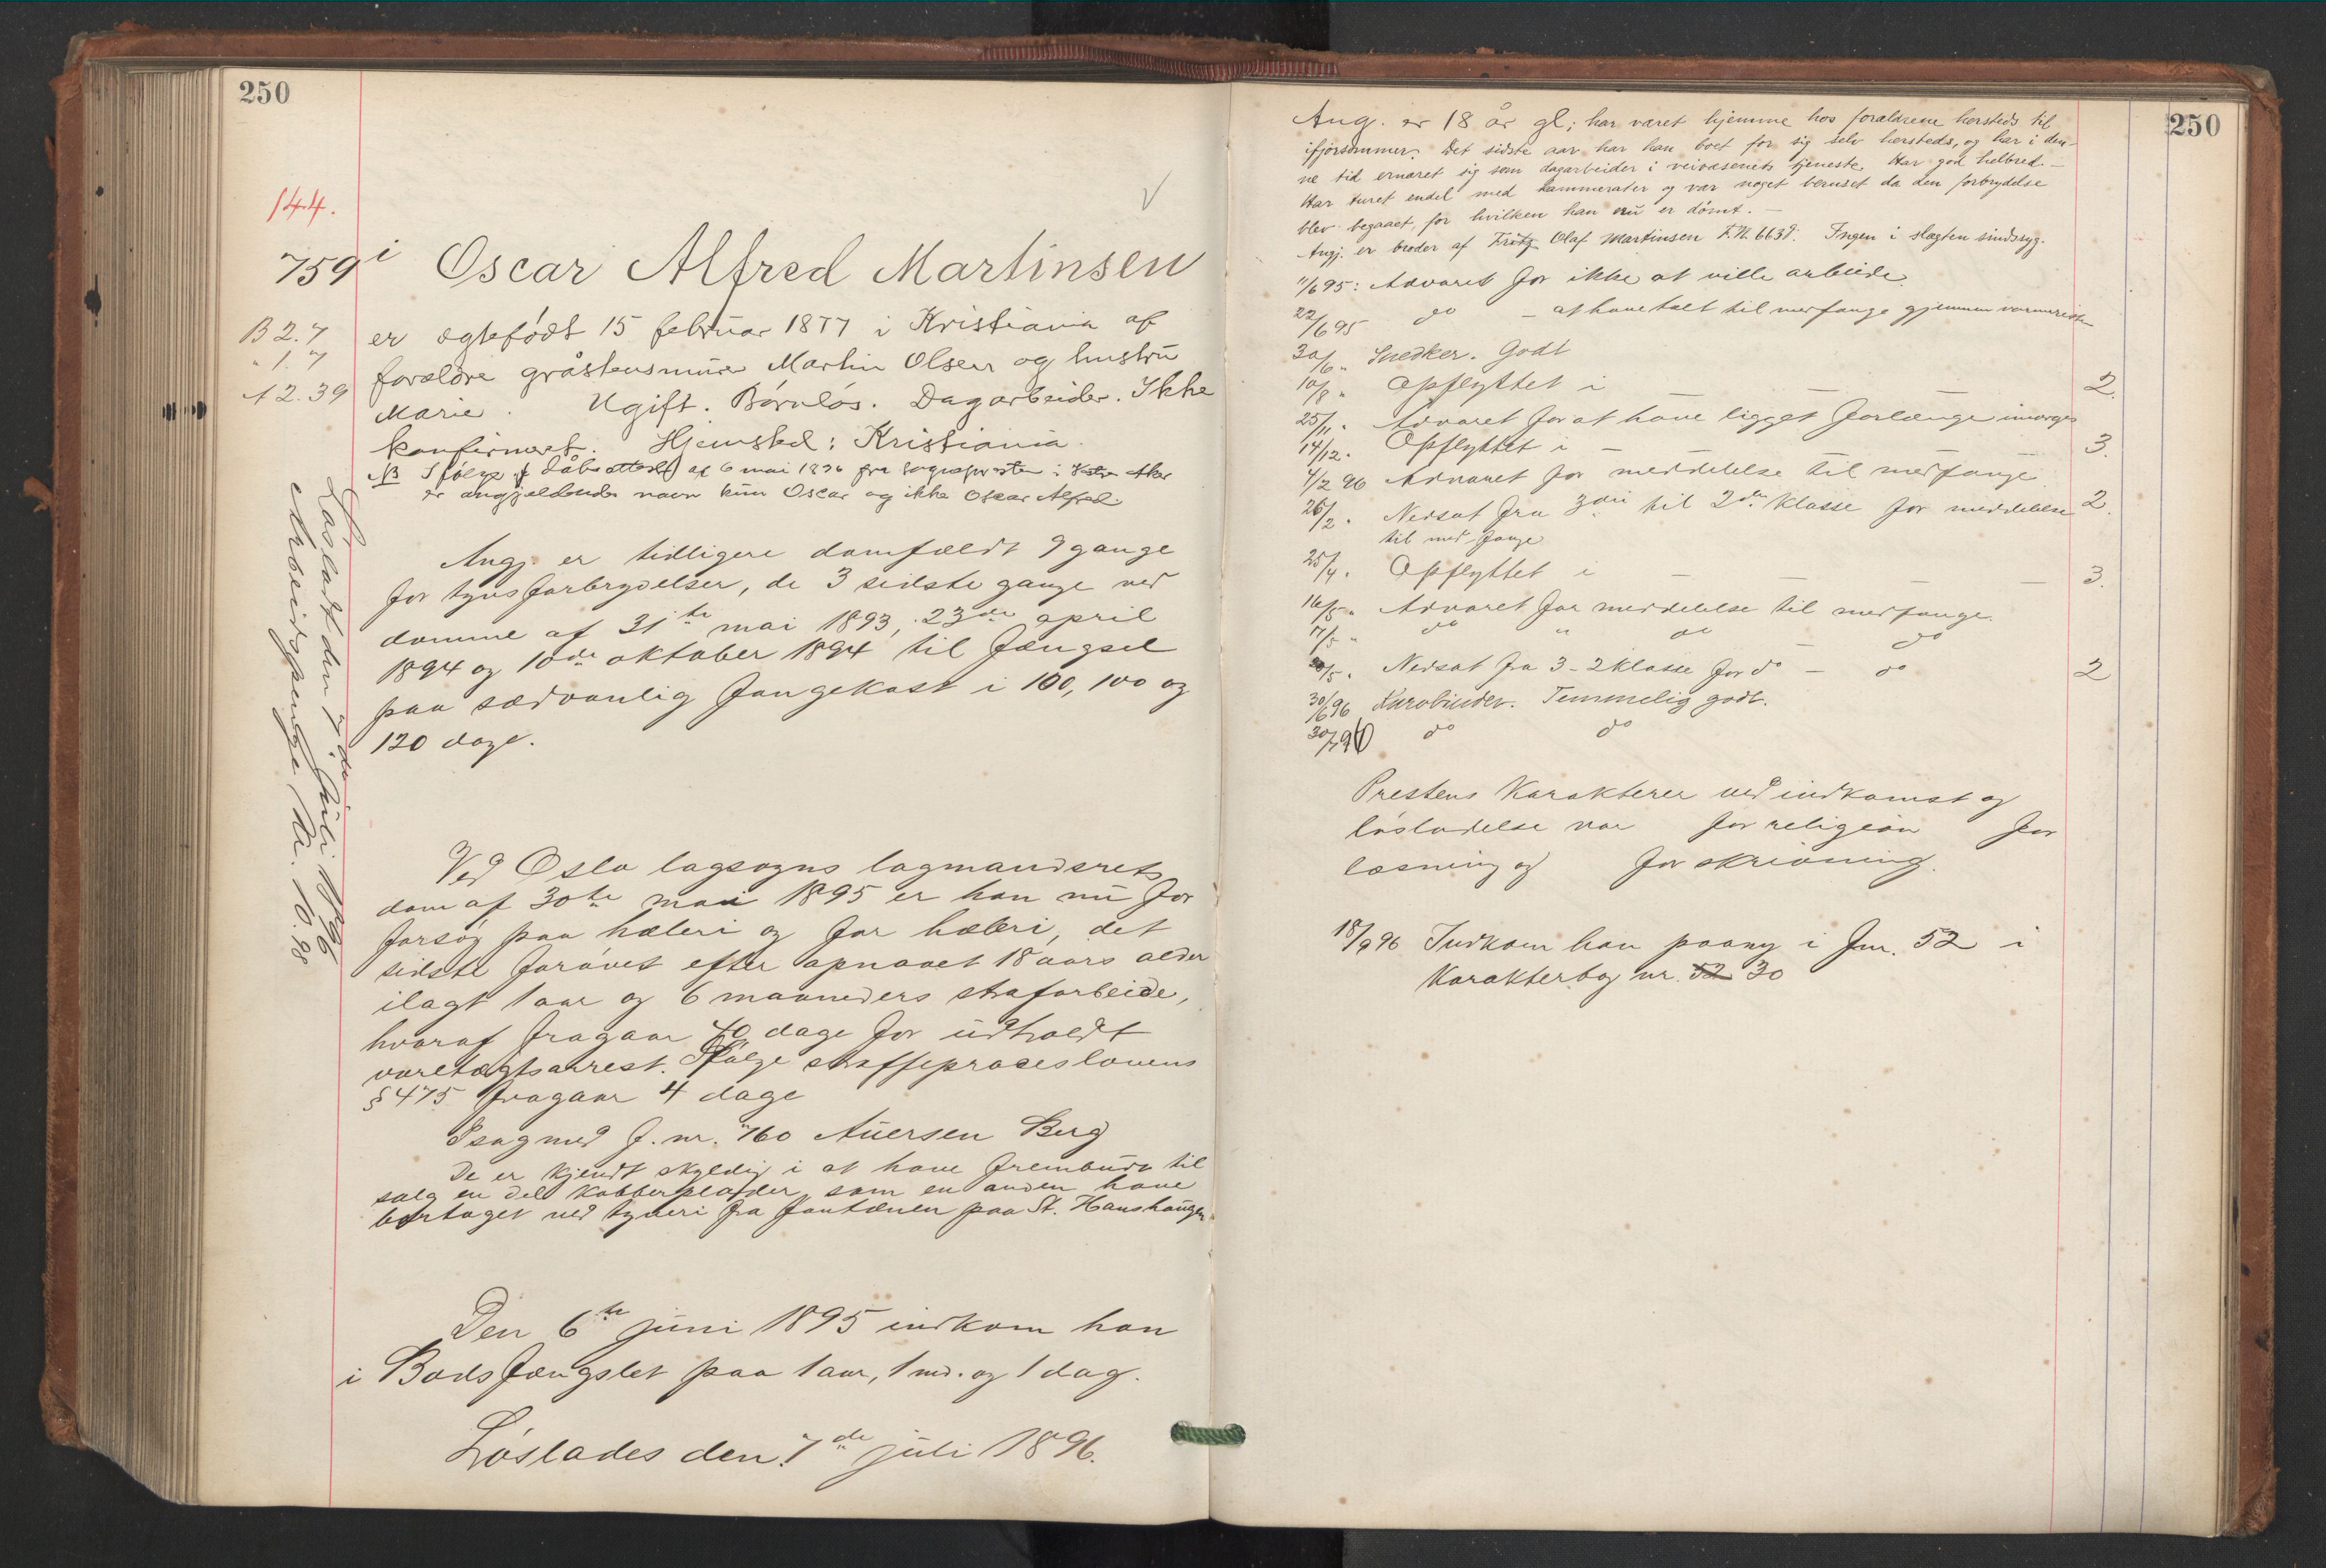 250
144.
759 i Oscar Alfred Martinsen
B 2.7
" 1."7
A 2.39
er ægtefødt 15 februar 1877 i Kristiania af
forældre gråstensmürer Martin Olsen og hustrü
Marie. Ugift. Børnløs. Dagarbeider. Ikke
konfirmeret. Hjemsted: Kristiania.
NB Ifølge dåbsattest af 6 mai 1896 fra sognepresten i Aker
er angjældendes navn kün Oscar og ikke Oscar Alfred.
Angj. er tidligere domfældt 9 gange
for tyvsforbrydelser, de 3 sidste gange ved
domme af 31te mai 1893, 23de april
1894 og 10de oktober 1894 til fængsel
paa sædvanlig fangekost i 100, 100 og
120 dage.
Ved Oslo lagsogns lagmandsrets
dom af 30te mai 1895 er han nü for
forsøg paa hæleri og for hæleri, det
sidste forøvet efter opnaaet 18 aars alder
ilagt 1 aar og 6 maaneders strafarbeide,
hvoraf fragaar 40 dage for üdholdt
varetægtsarrest. Ifølge straffeproceslovens
§ 475 fragaar 4 dage
I sag med f. nr. 760 Auersen Berg
De er kjendt skyldig i at have frembüdt til
salg en del kobberplader, som en anden have
borttaget ved tyveri fra fontænen paa St. Hanshaügen.
Den 6te jüni 1895 indkom han
i Bodsfængslet paa 1 aar, 1 md. og 1 dag.
Løslades den 7de jüli 1896.
Løsladt den 7de jüli 1896
Arbeidspenge Kr. 10.98
250
Ang. er 18 år gl; har været hjemme hos forældrene hersteds til
ifjorsommer. Det sidste aar har han boet for sig selv hersteds, og har i den-
ne tid ernæret sig som dagarbeider i veivæsenets tjeneste. Har god helbred. —
Har turet endel med kammerater og var noget beruset da den forbrydelse
blev begaaet, for hvilken han nü er dømt. —
Angj. er broder af Fritz Olaf Martinsen F.N. 663 d. Ingen i slægten sindssyg.
11/6 95: Advaret for ikke at ville arbeide.
22/6 95 do — at have talt til medfange gjennem varmeristen
30/6 " Snedker. Godt
10/8 " Opflyttet i — — — 2.
25/11 " Advaret for at have ligget forlænge imorges
14/12 " Opflyttet i — 3.
4/2 96 Advaret for meddelelse til medfange
26/2 " Nedsat fra 3die til 2den klasse for meddelelse 2.
til medfange
25/4 " Opflyttet i — — — — 3.
16/5 " Advaret for meddelelse til medfange.
17/5 " do " do do
20/5 " Nedsat fra 3 - 2 klasse for do — do 2
30/6 96 Kurvbinder. Temmelig godt.
30/7 96 do do
Prestens Karakterer ved indkomst og
løsladelse var for religion for
læsning og for skrivning.
18/9 96 Indkom han paany i fnr. 52 i
Karakterbog nr. 52 30